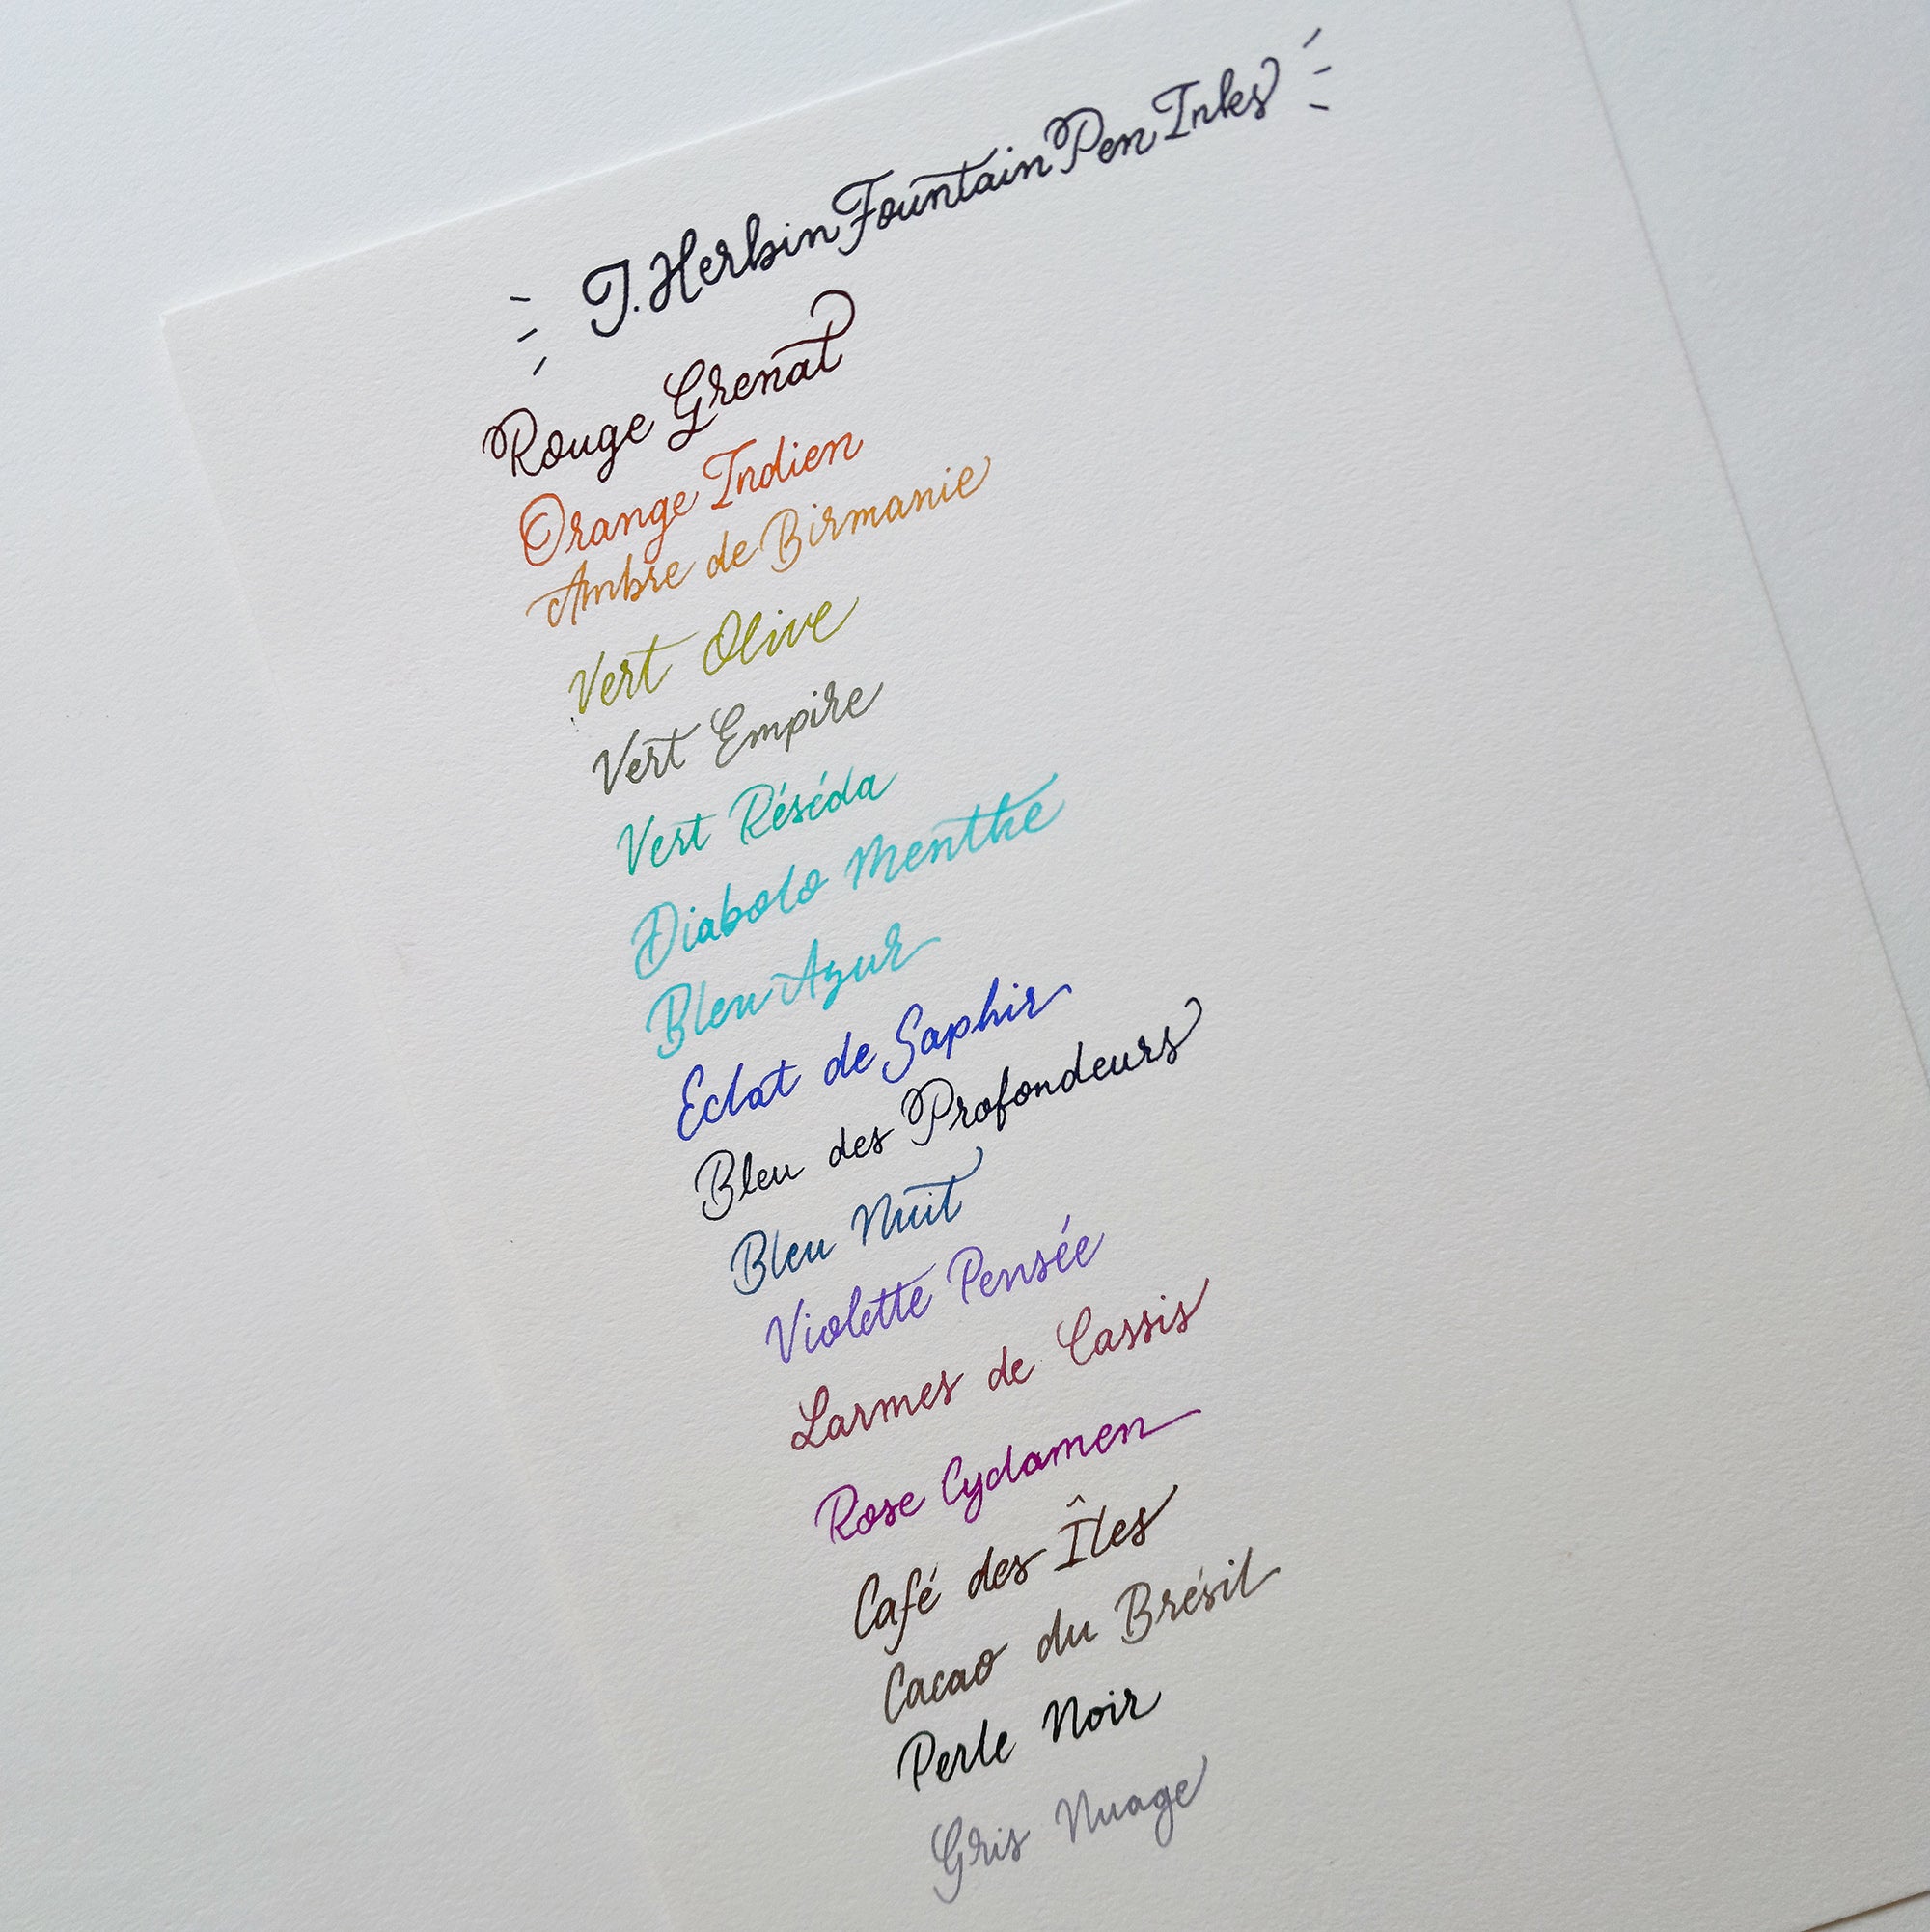 J. Herbin Fountain Pen Inks
Rouge Grenat
Orange Indien
Ambre de Birmanie
Vert Olive
Vert Empire
Vert Réséda
Diabolo Menthe
Bleu Azur
Eclat de Saphir
Bleu des Profondeurs
Bleu Nuit
Violette Pensée
Larmes de Cassis
Rose Cyclamen
Café des Îles
Cacao du Brésil
Perle Noir
Gris Nuage